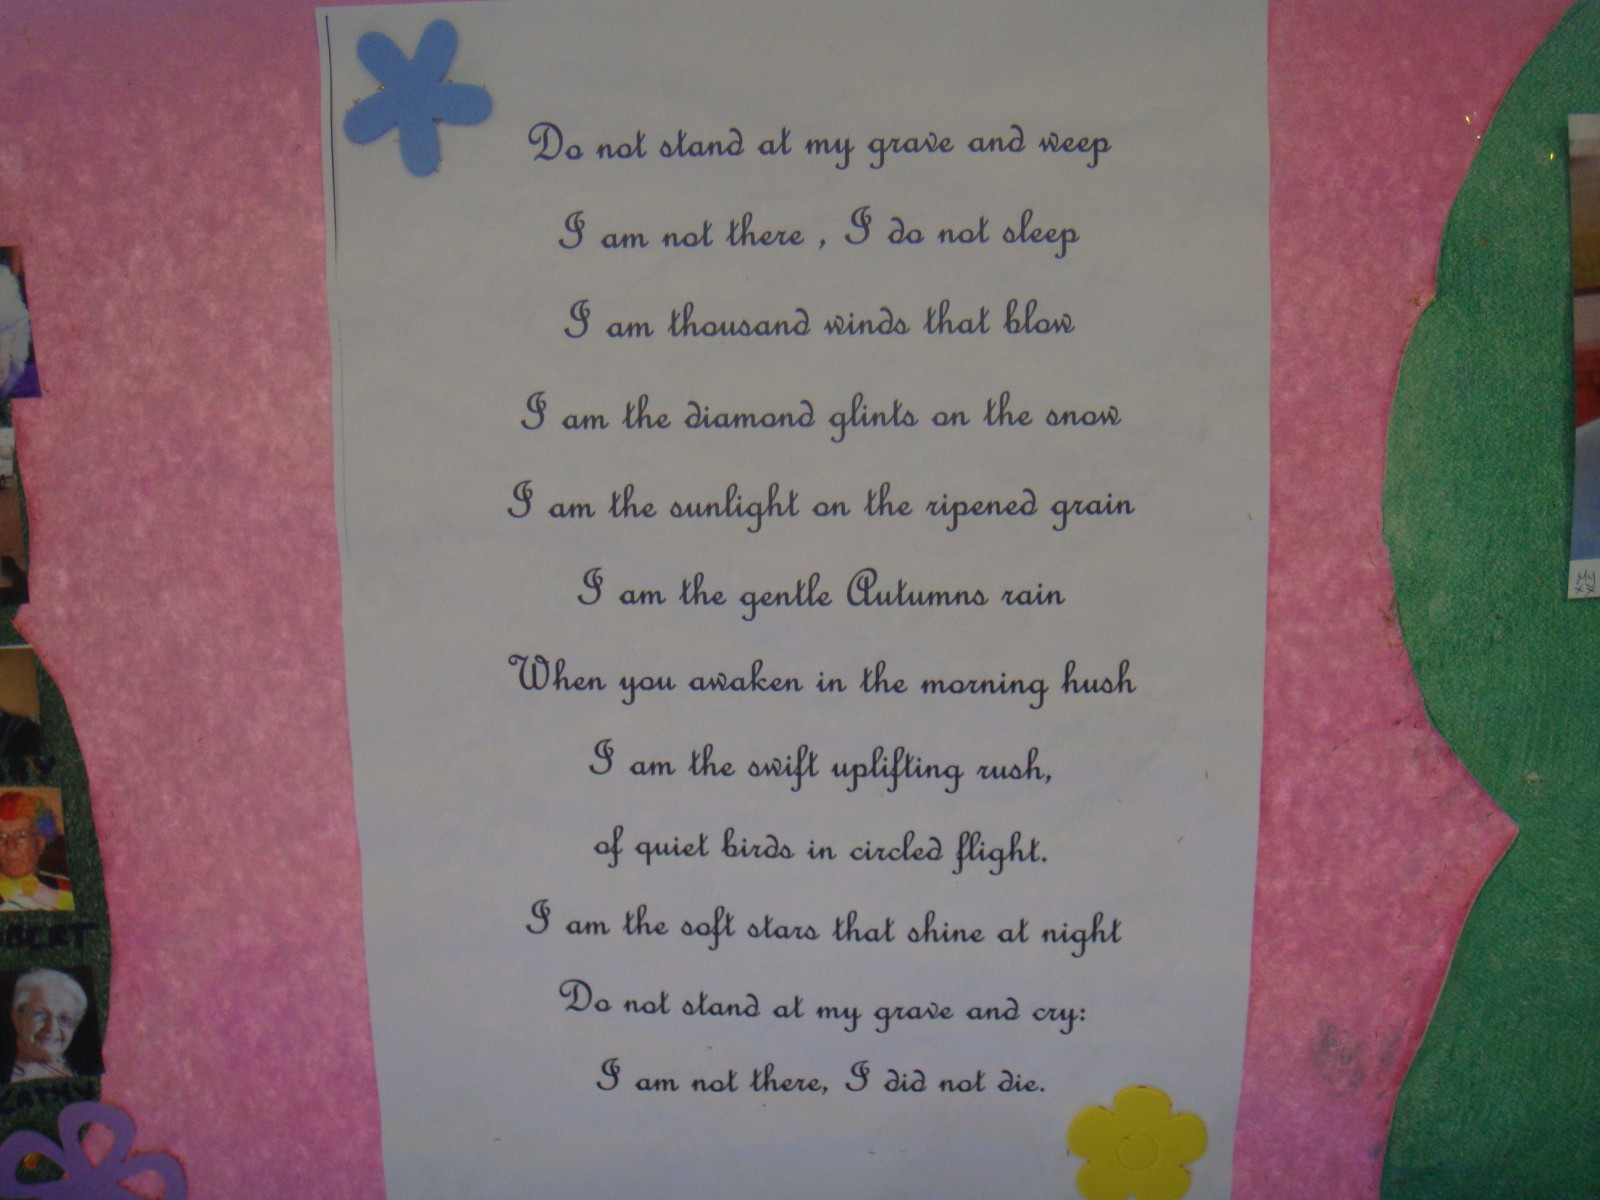 Do not stand at my grave and weep
I am not there , I do not sleep
I am thousand winds that blow
I am the diamond glints on the snow
I am the sunlight on the ripened grain
I am the gentle Autumns rain
When you awaken in the morning hush
I am the swift uplifting rush,
of quiet birds in circled flight.
I am the soft stars that shine at night
Do not stand at my grave and cry:
I am not there, I did not die.